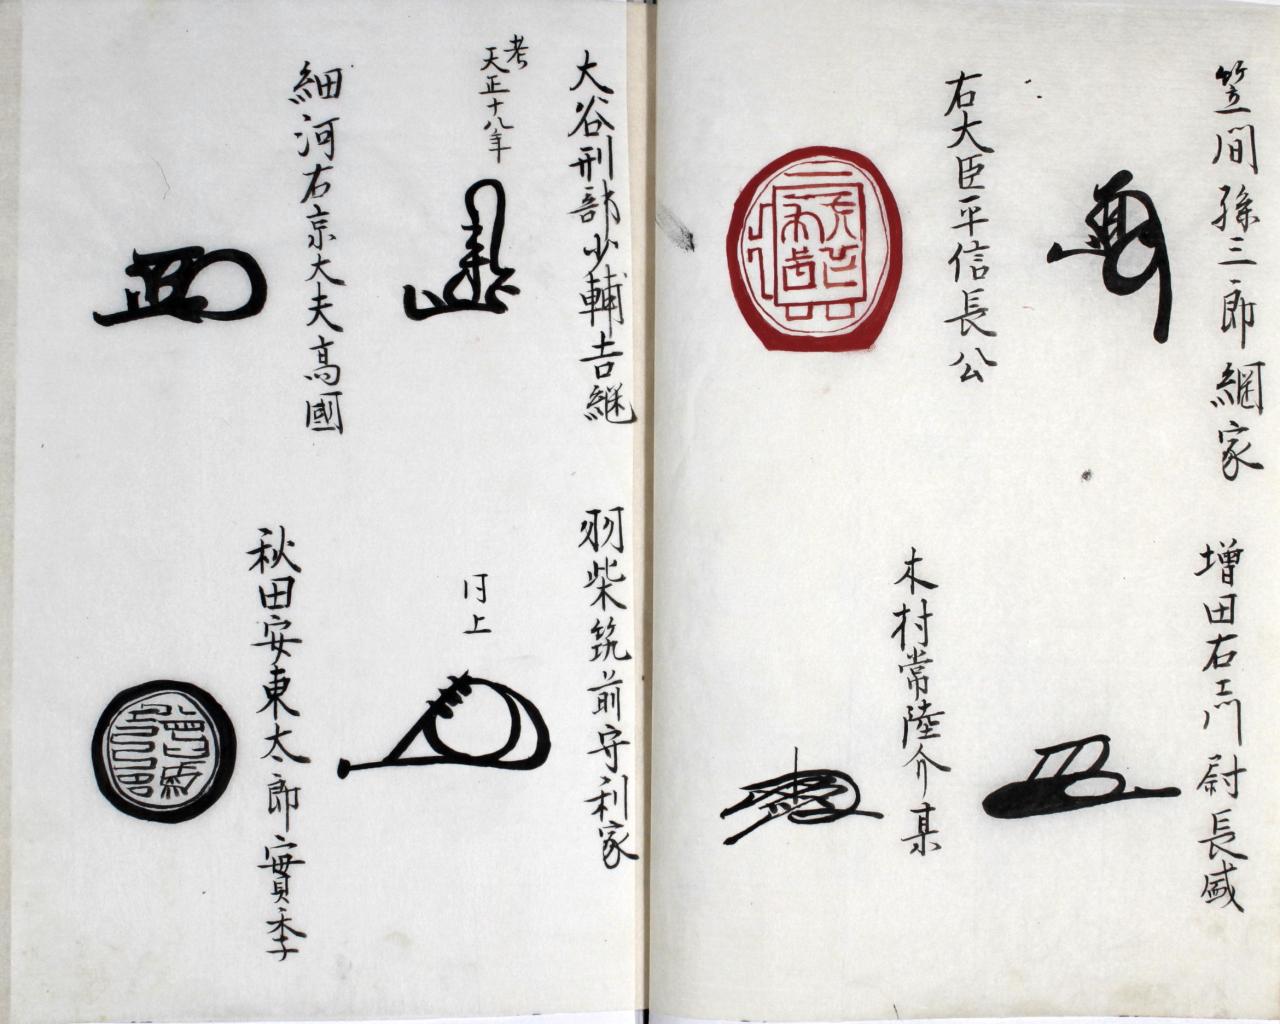 笠間孫三郎綱家
増田右衛門尉長盛
右大臣平信長公
木村常陸介某
大谷刑部少輔吉継
考
天正十八年
羽柴筑前守利家
同上
細河右京大夫高國
秋田安東太郎實季